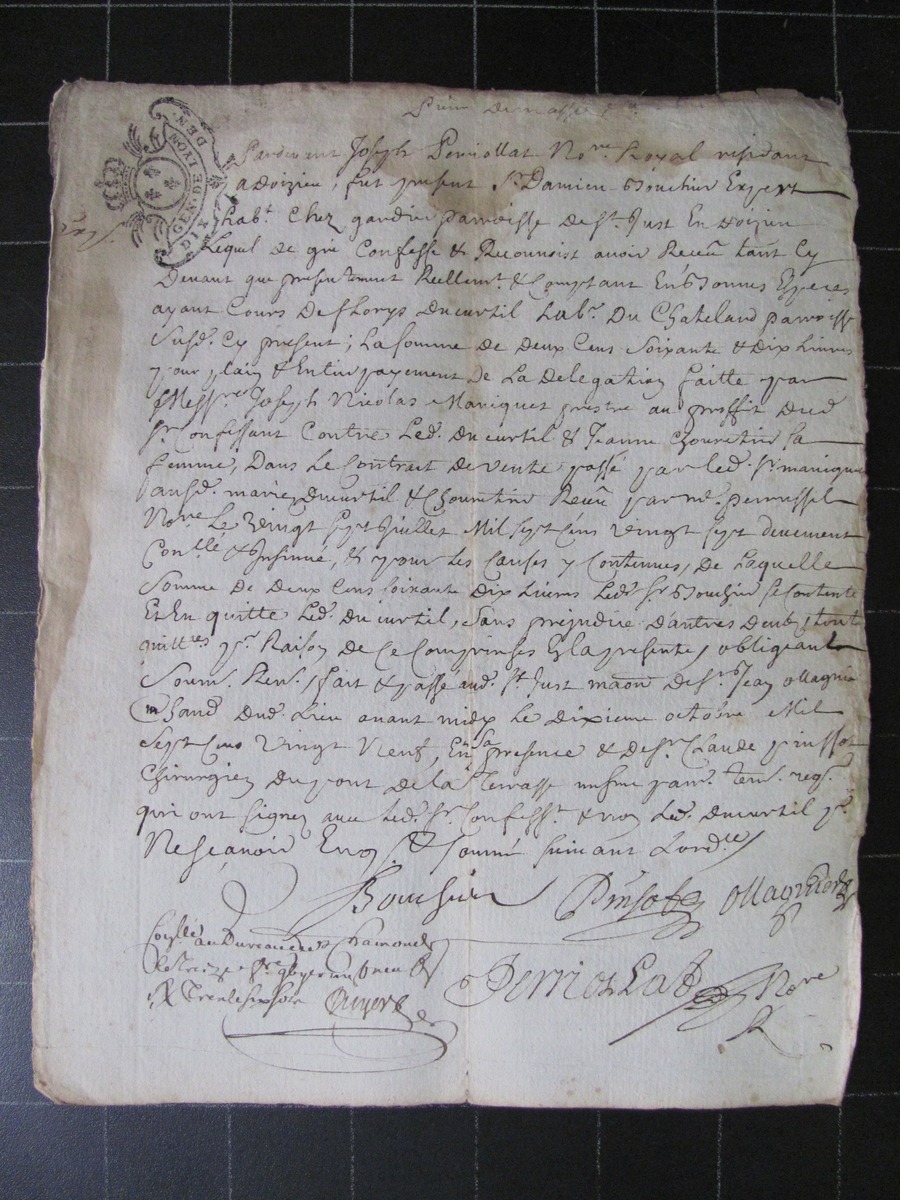 GEN. DE LYON
DIX DEN.
Pardevant Joseph Perriollat No.re Royal résidant
a doizieu, fut present Sr. Damien Bouchier Expert
hab.t Chez gardier parroisse de St. Just En doizieu
Lequel de gré Confesse & Reconnoist avoir Receu tant Cy
Devant que presentement Reellem.t & Comptant En Bonnes Espèces
ayant Cours De fleurys Ducurtil Lab.r Du Chateland parroisse
Susd. Cy present; La somme de Deux Cens Soixante & Dix Livres
pour plain & Entier payement de La Delegation faitte par
Mess.re Joseph Nicolas Maniquet prestre au proffit Dud.
Sr. Confessant Contre Led. Ducurtil & Jeanne Chouretier sa
femme, Dans Le Contrat de vente passé par led. Sr. maniquet
ausd. mariez Ducurtil & Chouretier Receu par m.e perrussel
No.re Le Vingt sept Juillet Mil sept Cens Vingt sept deuement
Con.llé & Insinué, & pour Les Causes y Contenues, De Laquelle
Somme De Deux Cens Soixante Dix Livres Led. Sr. Bouchier se Contente
Et En quitte Led. Ducurtil, Sans prejudice D'autres Deub, tout
quitt.es pr. Raison de Ce Comprinses En la presente, obligeant
Soum. Ren. fait & passé aud. St. Just maon De Sr. Jean ollagnier
m.hand Dud. Lieu avant midy Le Dixieme octobre Mil
Sept Cens Vingt Neuf, En sa presence & de Sr. Claude pinsot
Chirurgien Du pont De la Terrasse mesme parr. tem. reqs.
qui ont signez avec Led. Sr. Confess.t & non Led. Ducurtil pr.
Ne Sçavoir Enq. & sommé suivant L'ord.ce
Bouchier Pinsot Ollagnier
Con.llé au Bureau de St. Chamond
Le Treize 8.bre mil sept cens vingt neuf
Perriollat No.re